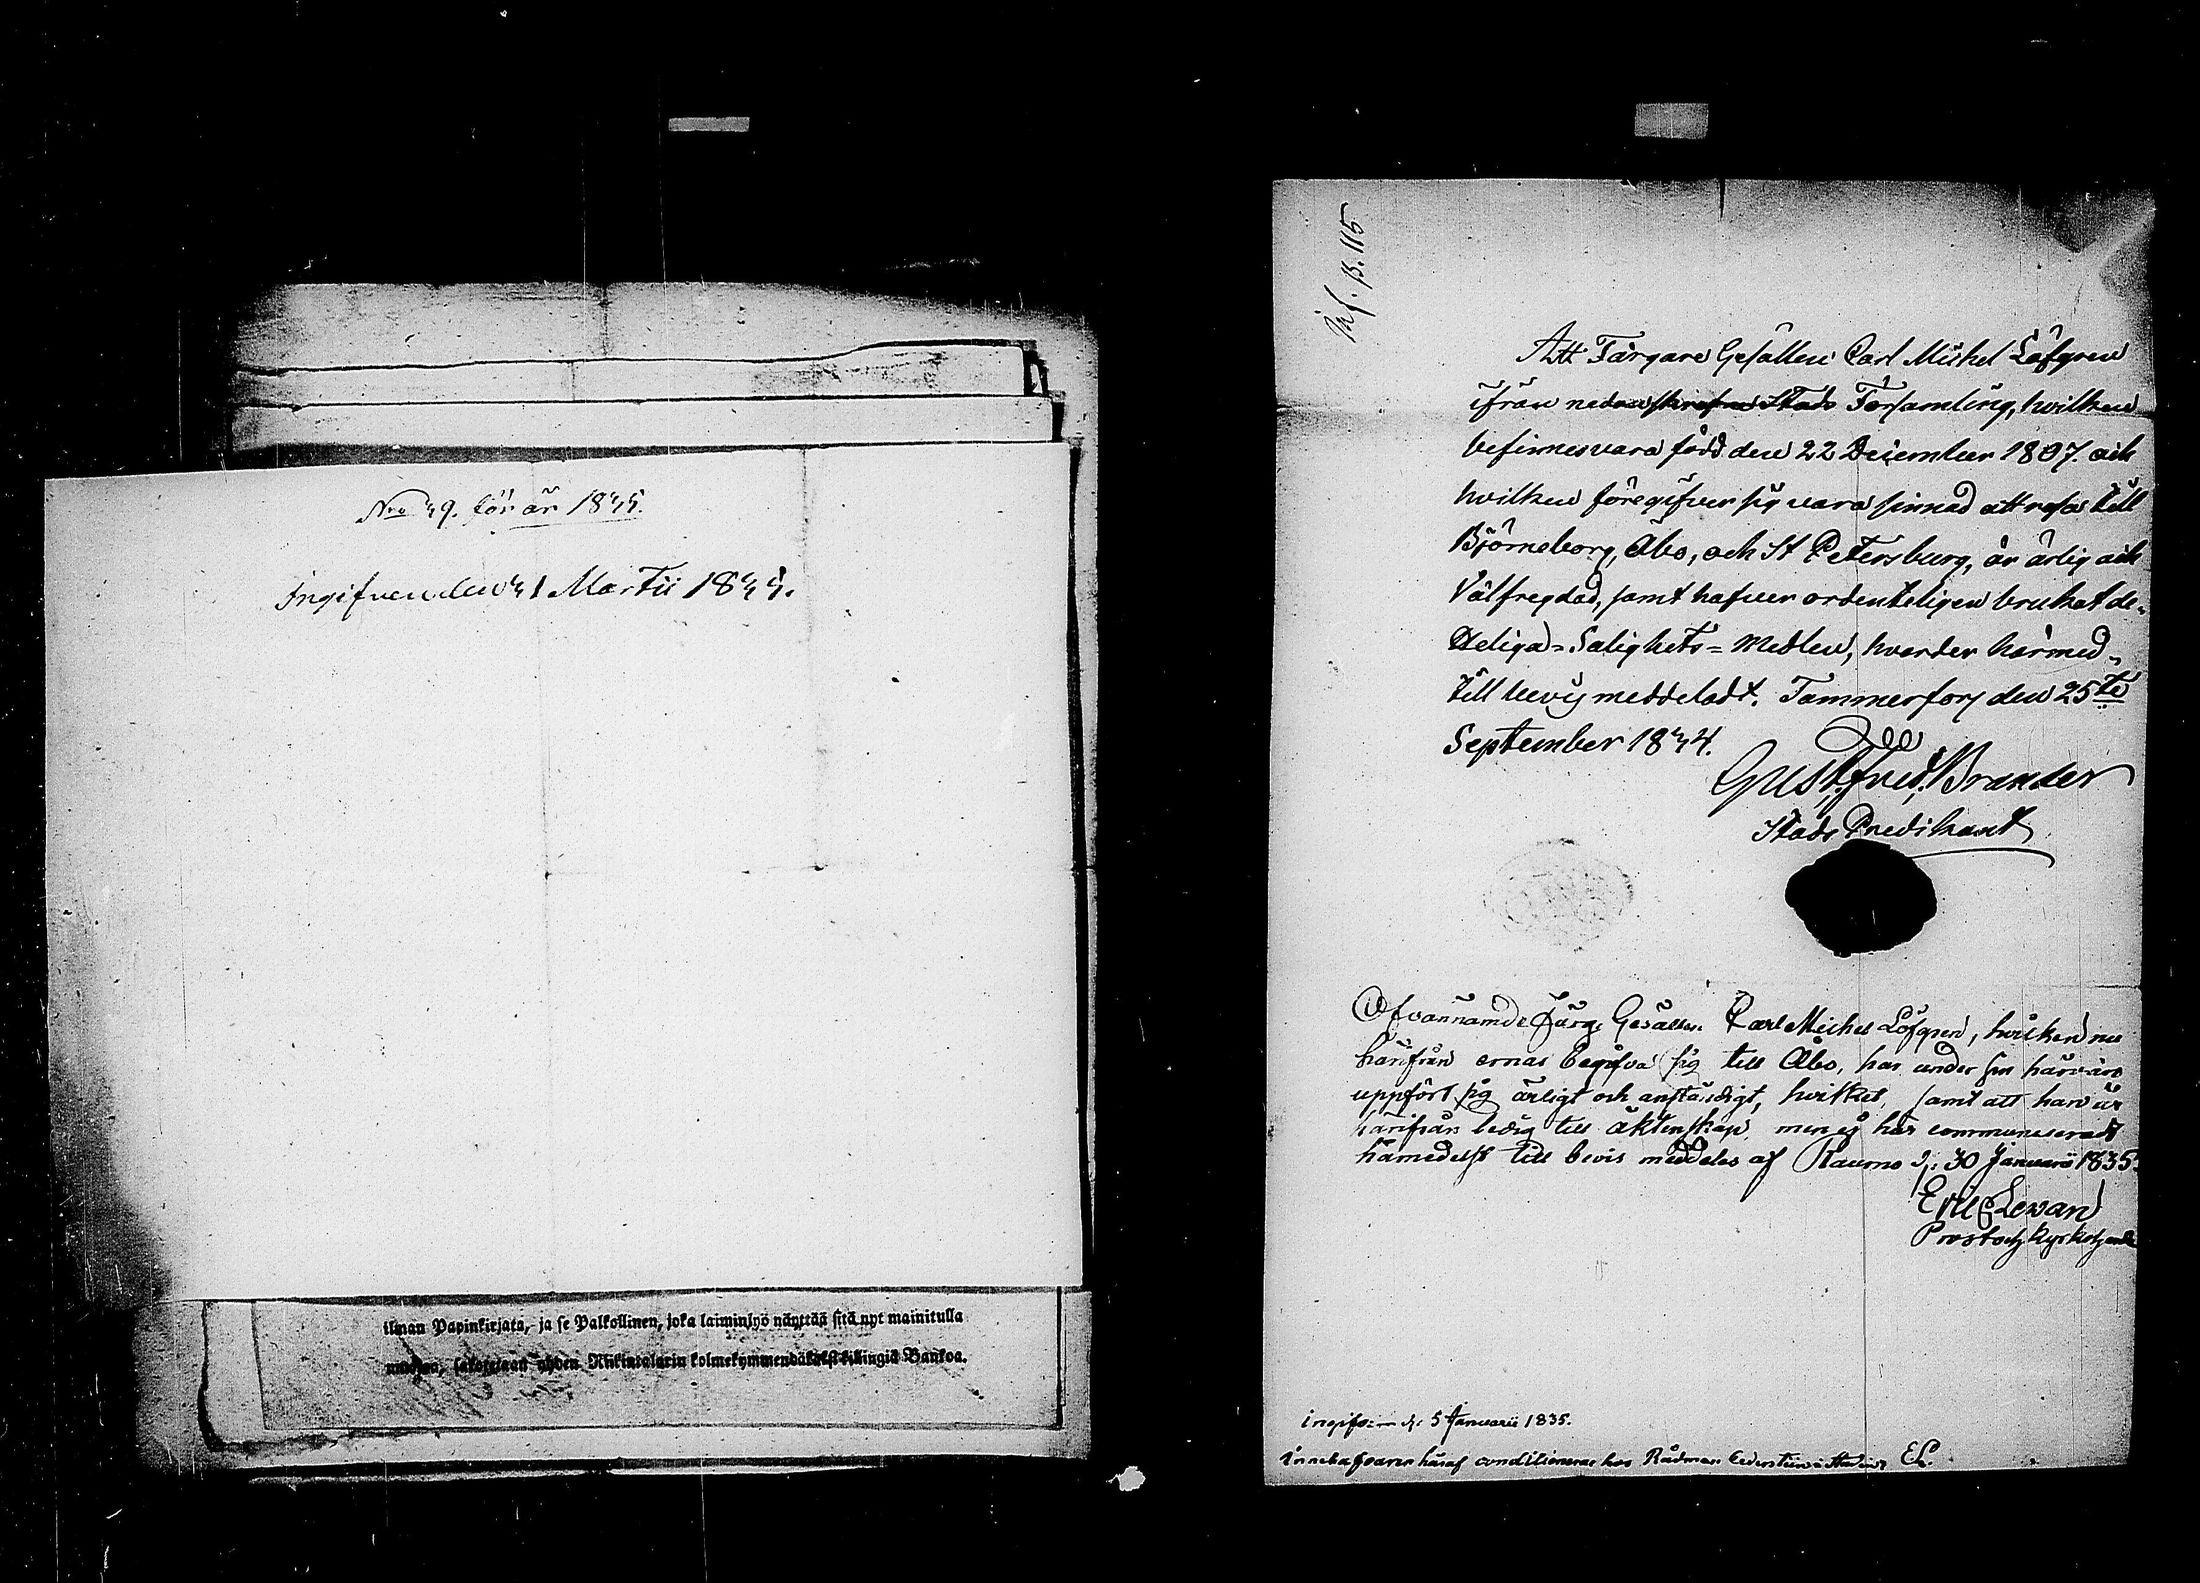 Nro 39. för år 1835.
Ingifven den 31 Martii 1835.
ilman Papinkirjata, ja se Palkollinen, joka laiminlyö näyttää sitä nyt mainitulla
muotoa, sakotetaan yhden Riikintalarin kolmekymmendäkaksi killingiä Bankoa.
Inf. p. 115
Att Färgare Gesällen Carl Michel Löfgren
ifrån nedanskrefne Stads Församling, hvilken
befinnes vara född den 22 December 1807. och
hvilken föregifver sig vara sinnad att resa till
Björneborg, Åbo, och St Petersburg, är ärlig och
Välfregdad, samt hafver ordenteligen brukat de
Heliga Salighets=Medlen, hvarder härmed
till bevis meddeladt. Tammerfors den 25te
September 1834.
Gust. Fred. Brander
Stads Predikant
Ofvannämde Färg. Gesällen Carl Michel Löfgren, hvilken nu
härifrån ernar begifva sig till Åbo, har under sin härvaro
uppfört sig ärligt och anständigt, hvilket, samt att han är
härifrån ledig till äktenskap, men ej här communicerat
härmedelst till bevis meddeles af Raumo d. 30 Januarii 1835.
Eric Lewan
Prost och Kyrkoherde
ingifven d. 5 Januarii 1835.
Innehafvaren häraf conditionerar hos Rådman E.L.